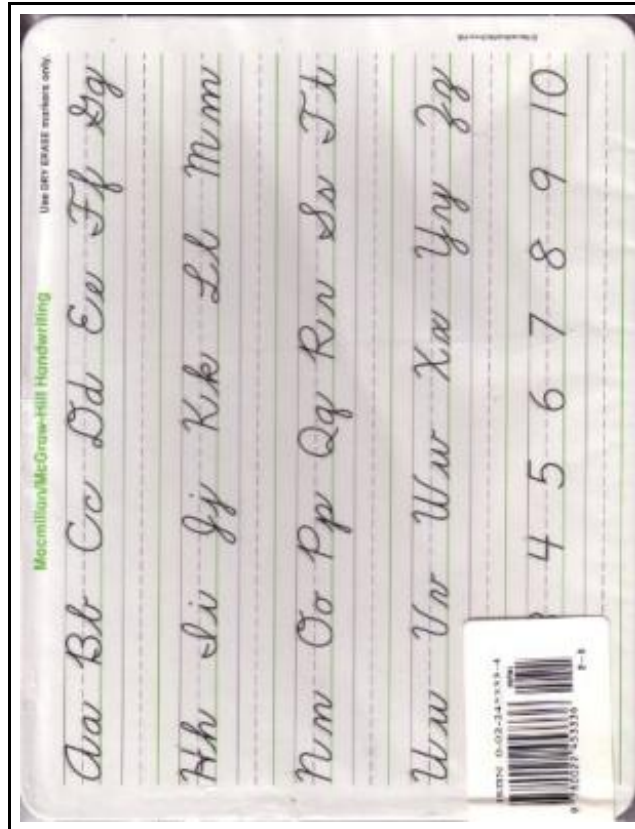 Macmillan/McGraw-Hill Handwriting Use DRY ERASE markers only.
Aa Bb Cc Dd Ee Ff Gg
Hh Ii Jj Kk Ll Mm
Nn Oo Pp Qq Rr Ss Tt
Uu Vv Ww Xx Yy Zz
4 5 6 7 8 9 10